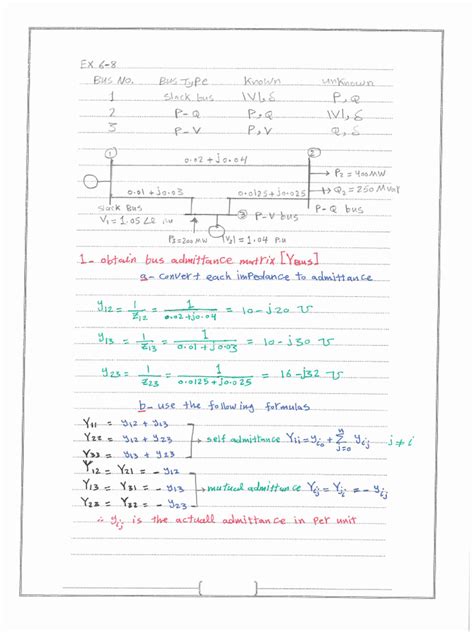 EX 6-8
Bus No. Bus Type Known unknown
1 Slack bus |V|,δ P,Q
2 P-Q P,Q |V|,δ
3 P-V P,V Q,δ
① ②
0.02+j0.04
P2=400MW
0.01+j0.03 0.0125+j0.025
Q2=250 Mvar
Slack Bus ③ P-V bus P-Q bus
P3=200MW |V3|=1.04 P.u
1- obtain bus admittance matrix [YBus]
a- convert each impedance to admittance
y12 = 1/Z12 = 1/0.02+j0.04 = 10-j20 ℧
y13 = 1/Z13 = 1/0.01+j0.03 = 10-j30 ℧
y23 = 1/Z23 = 1/0.0125+j0.025 = 16-j32 ℧
b- use the following formulas
Y11 = y12 + y13
Y22 = y12 + y23 self admittance
Y33 = y13 + y23
Y12 = Y21 = -y12
Y13 = Y31 = -y13 mutual admittance
Y23 = Y32 = -y23
∴ yij is the actuall admittance in per unit